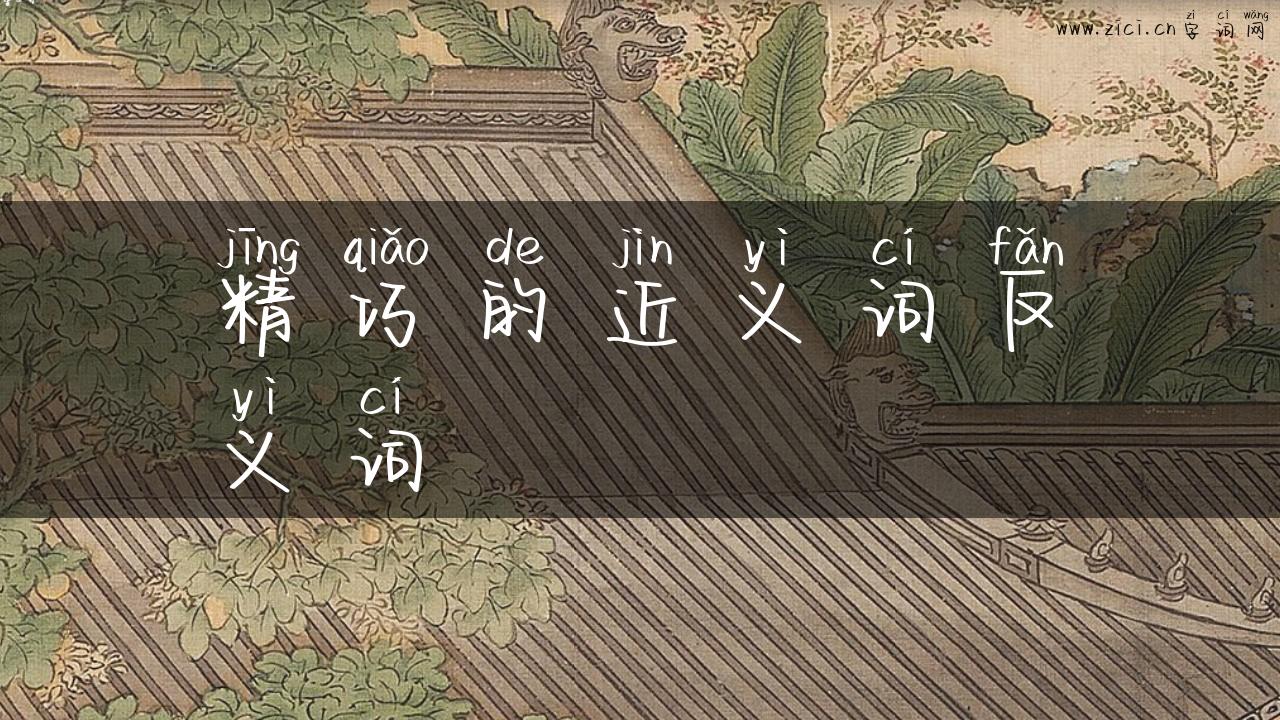 zì cí wǎng
www.zici.cn 字 词 网
jīng qiǎo de jìn yì cí fǎn
精 巧 的 近 义 词 反
yì cí
义 词